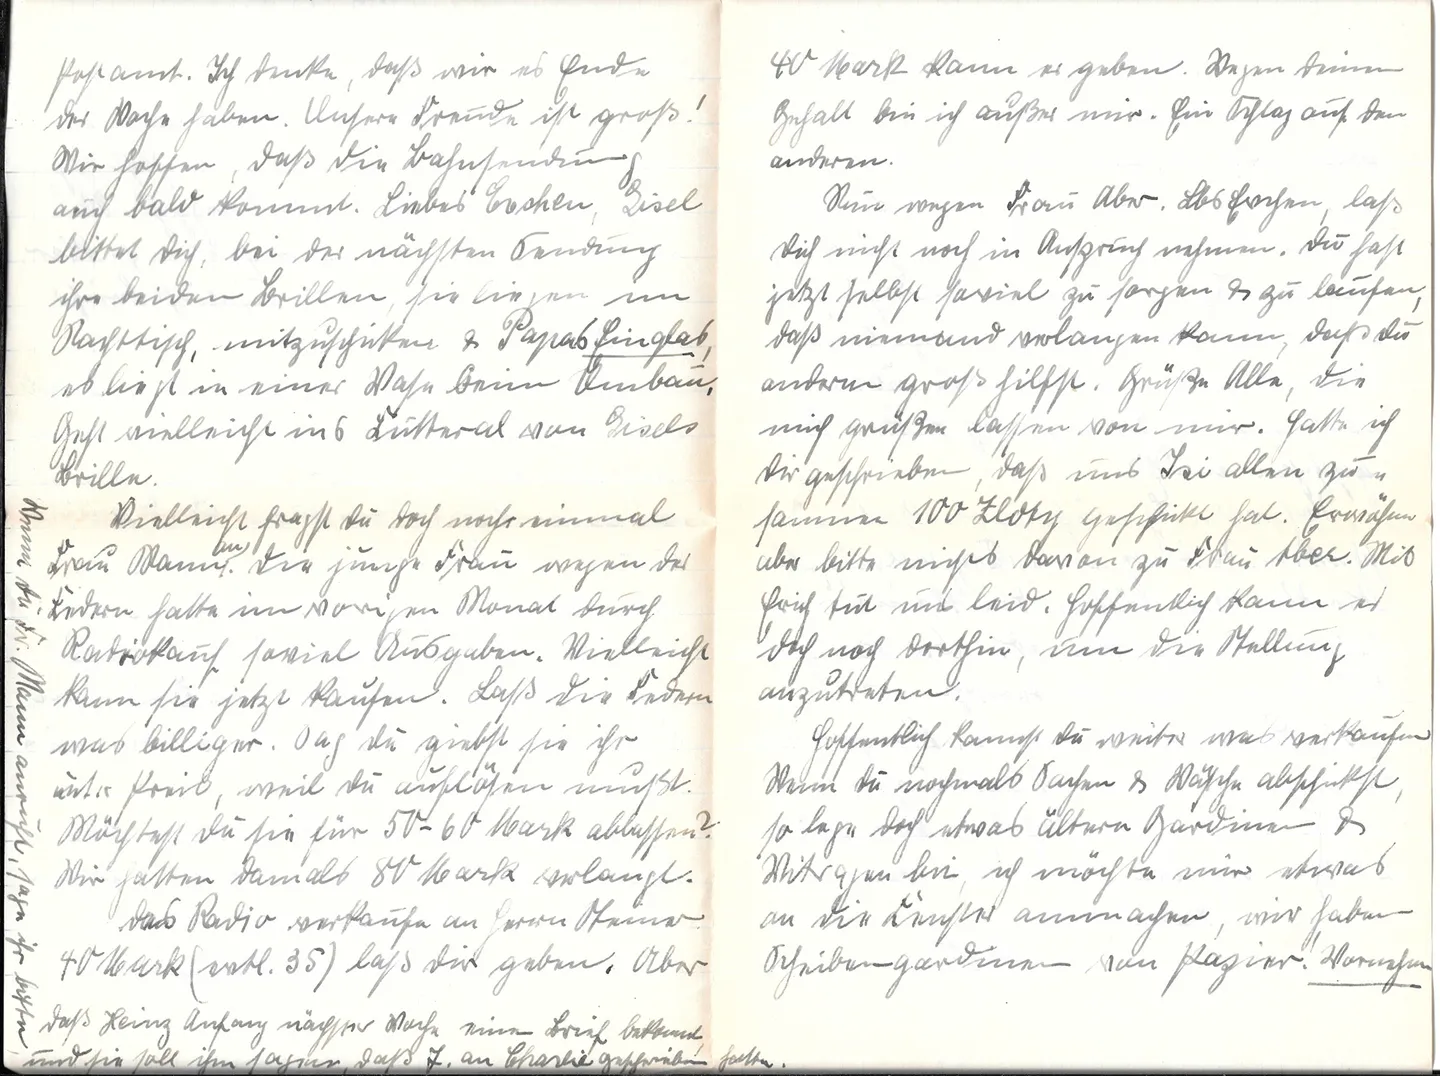 Postamt. Ich denke, daß wir es Ende
der Woche haben. Unsere Freude ist groß!
Wir hoffen, daß die Bahnsendung
auch bald kommt. Liebes Evchen, Gisel
bittet dich, bei der nächsten Sendung
ihre beiden Brillen, sie liegen im
Nachttisch, mitzuschicken & Papas Einglas,
es liegt in einer Vase beim Umbau.
Geht vielleicht ins Futteral von Gisels
Brille.
Vielleicht fragst du doch noch einmal
Frau Mann an. Die junge Frau wegen der
Federn hatte im vorigen Monat durch
Radiokauf soviel Ausgaben. Vielleicht
kann sie jetzt kaufen. Laß die Federn
was billiger. Sag du giebst sie ihr
unter Preis, weil du auflösen mußt.
Möchtest du sie für 50-60 Mark ablassen?
Wir hatten damals 80 Mark verlangt.
Das Radio verkaufe an Herrn Steiner
40 Mark (evtl. 35) laß dir geben. Aber
Wenn du Fr. Mann anrufst, sage ihr bitte
daß Heinz Anfang nächster Woche einen Brief bekommt,
und sie soll ihm sagen, daß J. an Charlie geschrieben hatte.
40 Mark kann er geben. Wegen deinem
Gehalt bin ich außer mir. Ein Schlag auf den
anderen.
Nun wegen Frau Aber. Lbs Evchen, laß
dich nicht noch in Anspruch nehmen. Du hast
jetzt selbst soviel zu sorgen & zu laufen,
daß niemand verlangen kann, daß du
andern groß hilfst. Grüße Alle, die
mich grüßen lassen von mir. Hatte ich
dir geschrieben, daß uns Isi allen zu-
sammen 100 Zloty geschickt hat. Erwähne
aber bitte nichts davon zu Frau Aber. Mit
Erich tut uns leid. Hoffentlich kann er
doch noch dorthin, um die Stellung
anzutreten.
Hoffentlich kannst du weiter was verkaufen
Wenn du nochmals Sachen & Wäsche abschickst,
so lege doch etwas ältern Gardinen &
bei, ich möchte mir etwas
an die Fenster anmachen, wir haben
Scheibengardinen von Papier. Vornehm